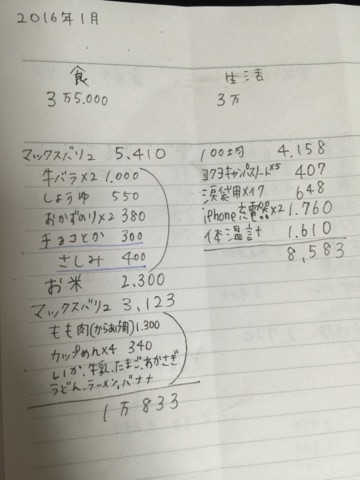 2016年1月
食
3万5.000
マックスバリュ 5.410
牛バラ×2 1.000
しょうゆ 550
おかずのり×2 380
チョコとか 300
さしみ 400
お米 2.300
マックスバリュ 3,123
もも肉(からあげ用) 1.300
カップめん×4 340
しいか、牛乳、たまご、あかさぎ
うどん、ラーメン、バナナ
1万833
生活
3万
100均 4.158
コクヨキャンパスノート×5 407
涙袋用メイク 648
iPhone充電器×2 1.760
体温計 1.610
8,583